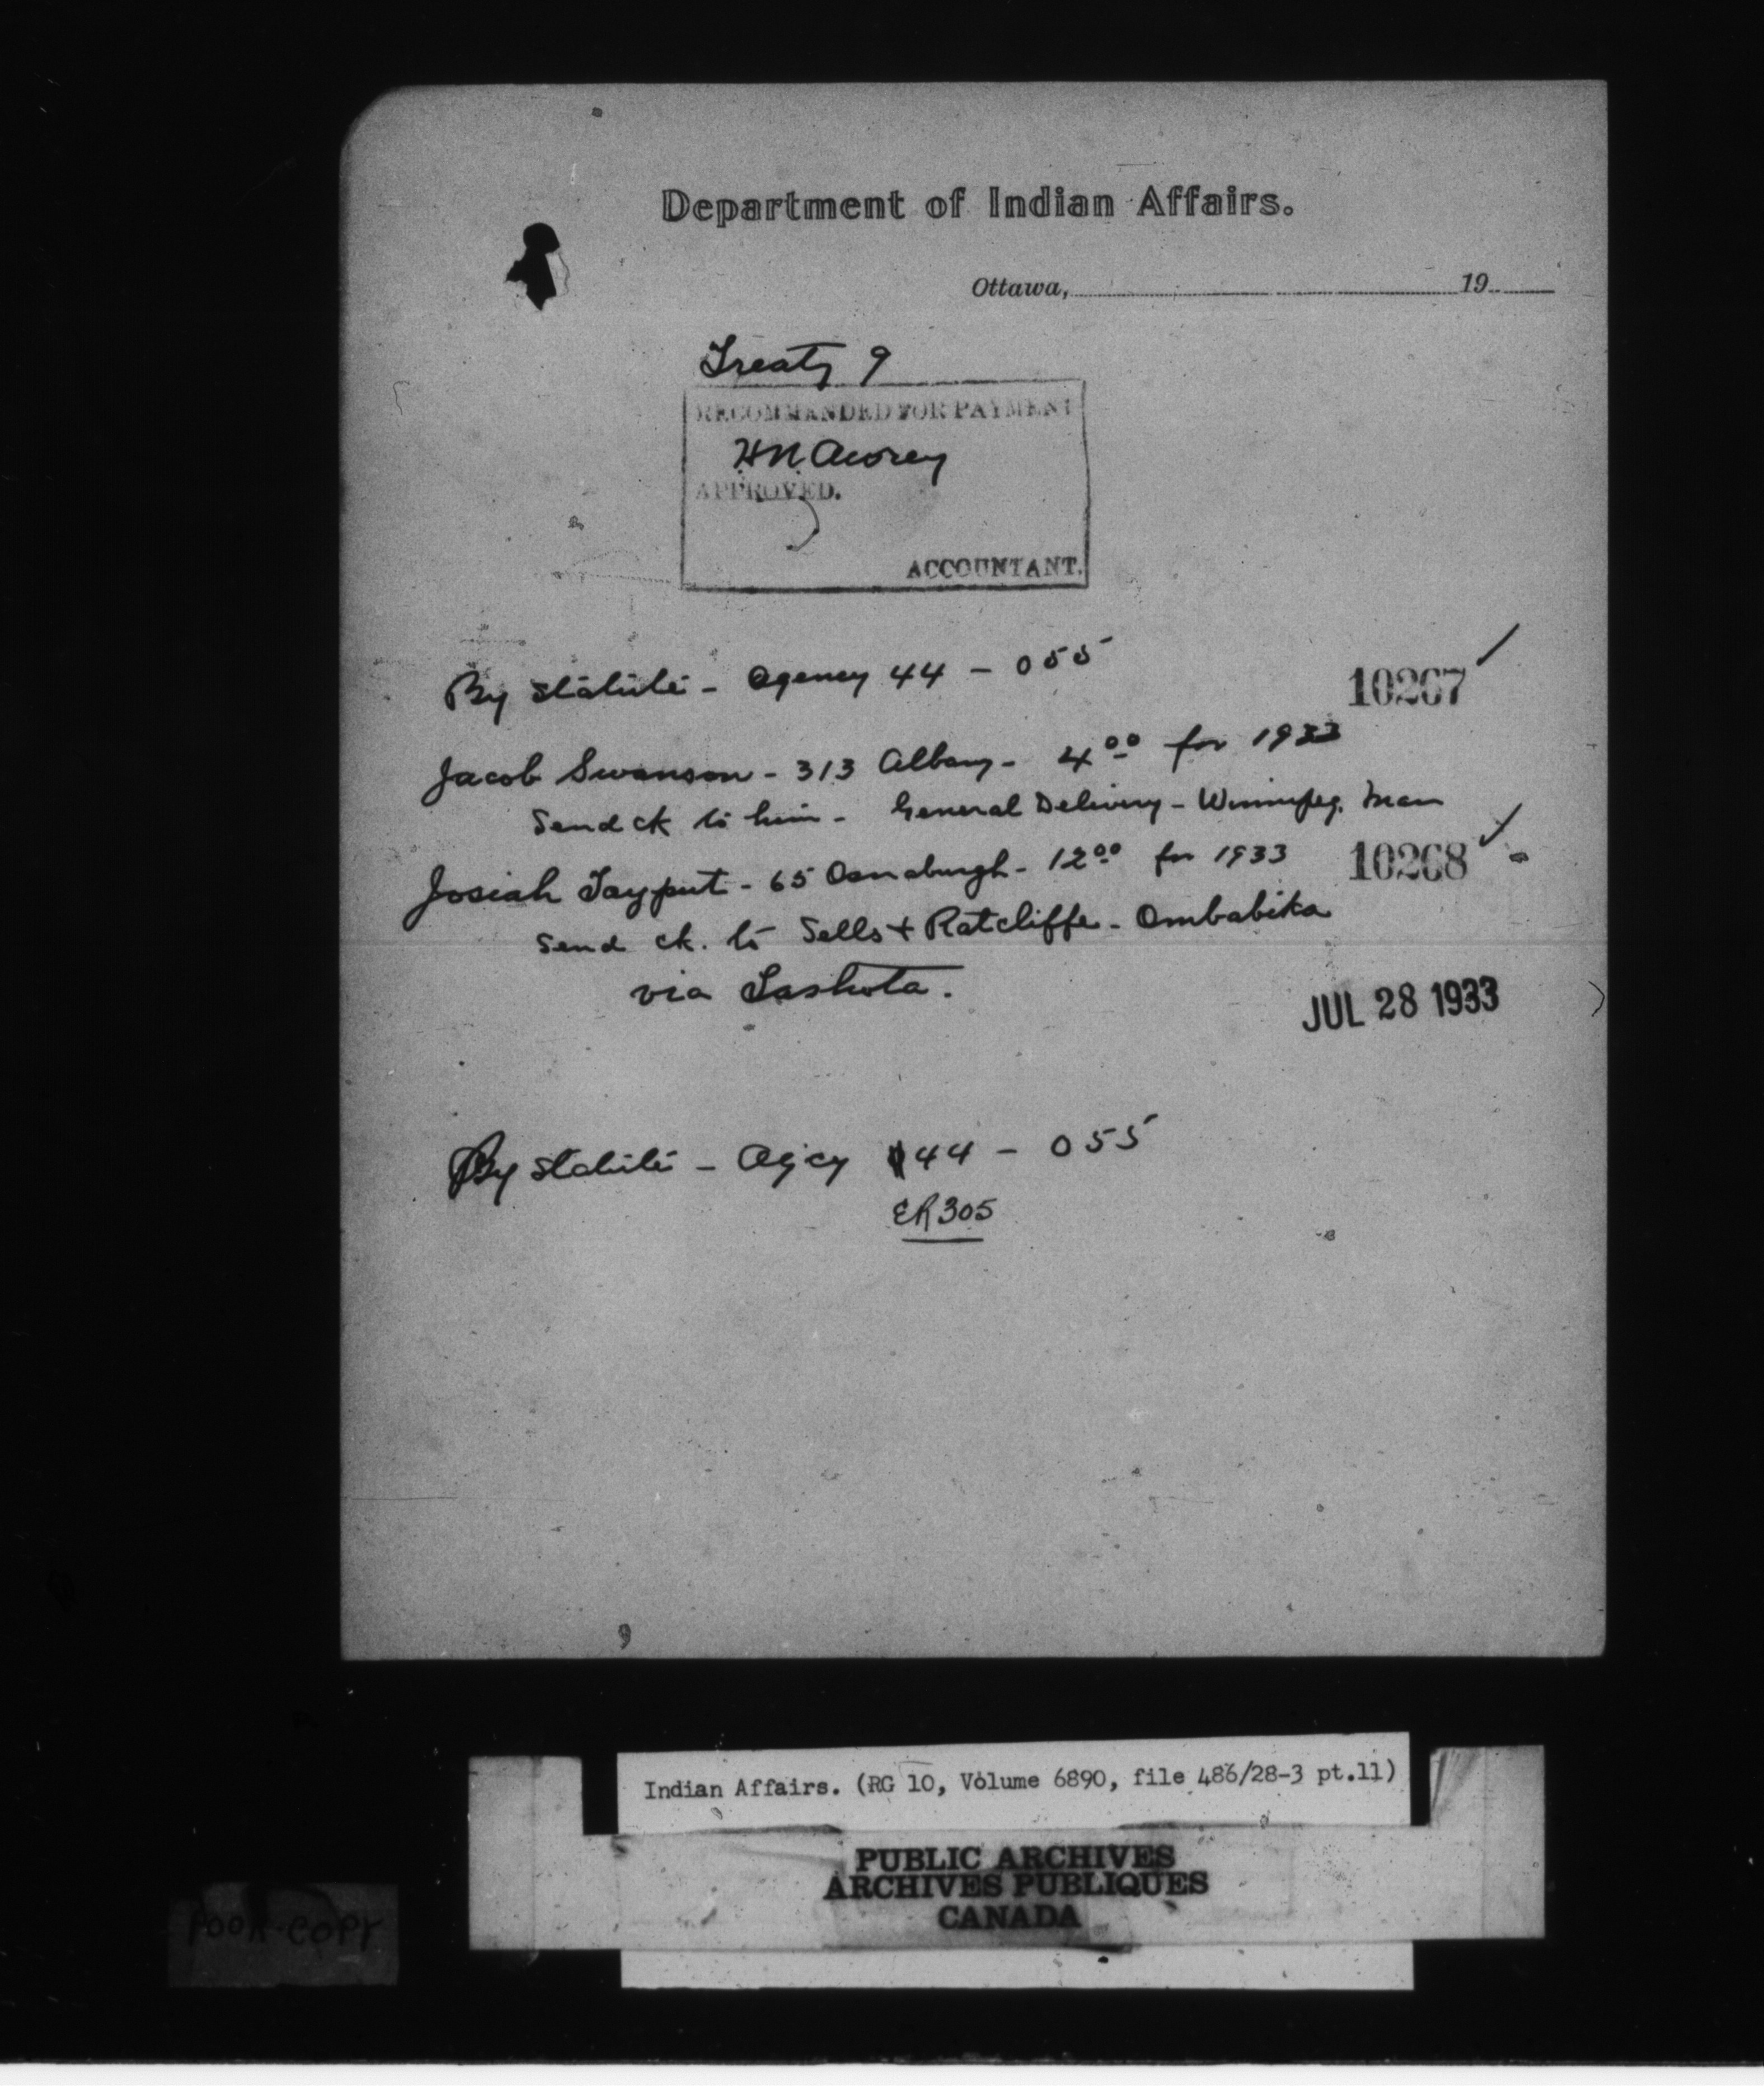 Department of Indian Affairs.
Ottawa, 19
Treaty 9
RECOMMANDED FOR PAYMENT
H.N. Awrey
APPROVED.
ACCOUNTANT.
By statute - Agency 44 - 055
10267
Jacob Swanson - 313 Albany - 4.00 for 1933
Send ck to him - General Delivery - Winnipeg, Man
Josiah Tayput - 65 Osnaburgh - 12.00 for 1933 10268
Send ck. to Sells + Ratcliffe - Ombabika
via Tashota.
JUL 28 1933
By statute - Agcy 44 - 055
ER305
Indian Affairs. (RG 10, Volume 6890, file 486/28-3 pt.11)
PUBLIC ARCHIVES
ARCHIVES PUBLIQUES
CANADA
POOR COPY